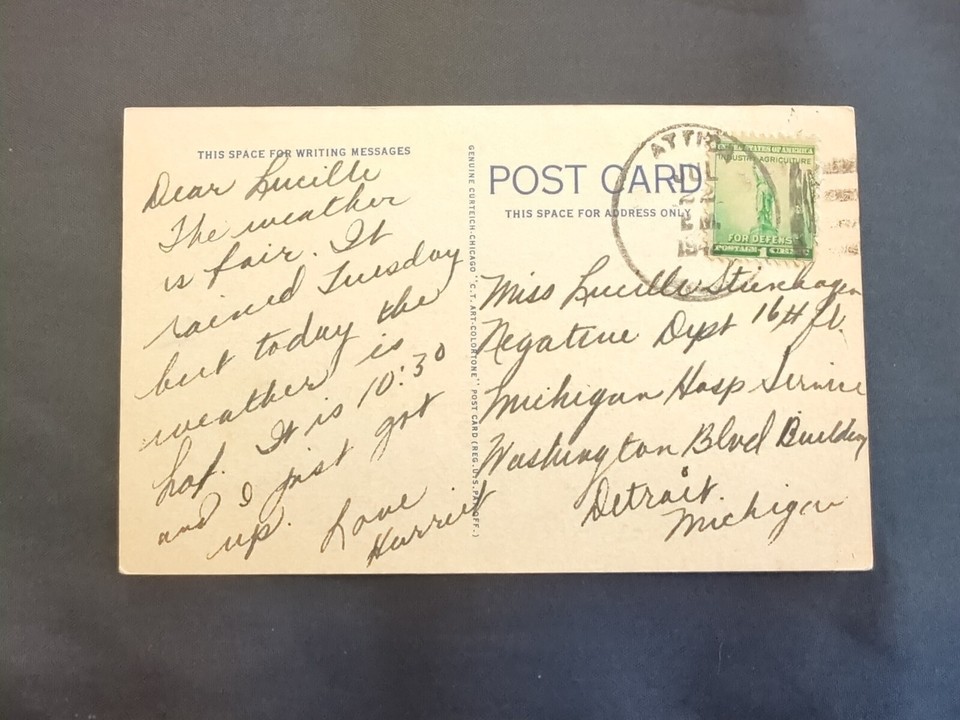 THIS SPACE FOR WRITING MESSAGES
Dear Lucille
The weather
is fair. It
rained Tuesday
but today the
weather is
hot. It is 10:30
and I just got
up.
Love
Harriet
GENUINE CURTEICH-CHICAGO "C.T. ART-COLORTONE" POST CARD (REG. U.S. PAT. OFF.)
POST CARD
THIS SPACE FOR ADDRESS ONLY
JUL
22
194
UNITED STATES OF AMERICA
INDUSTRY AGRICULTURE
FOR DEFENSE
POSTAGE 1
Miss Lucille Steinhagen
Negative Dept 16th fl.
Michigan Hosp Service
Washington Blvd Building
Detroit.
Michigan